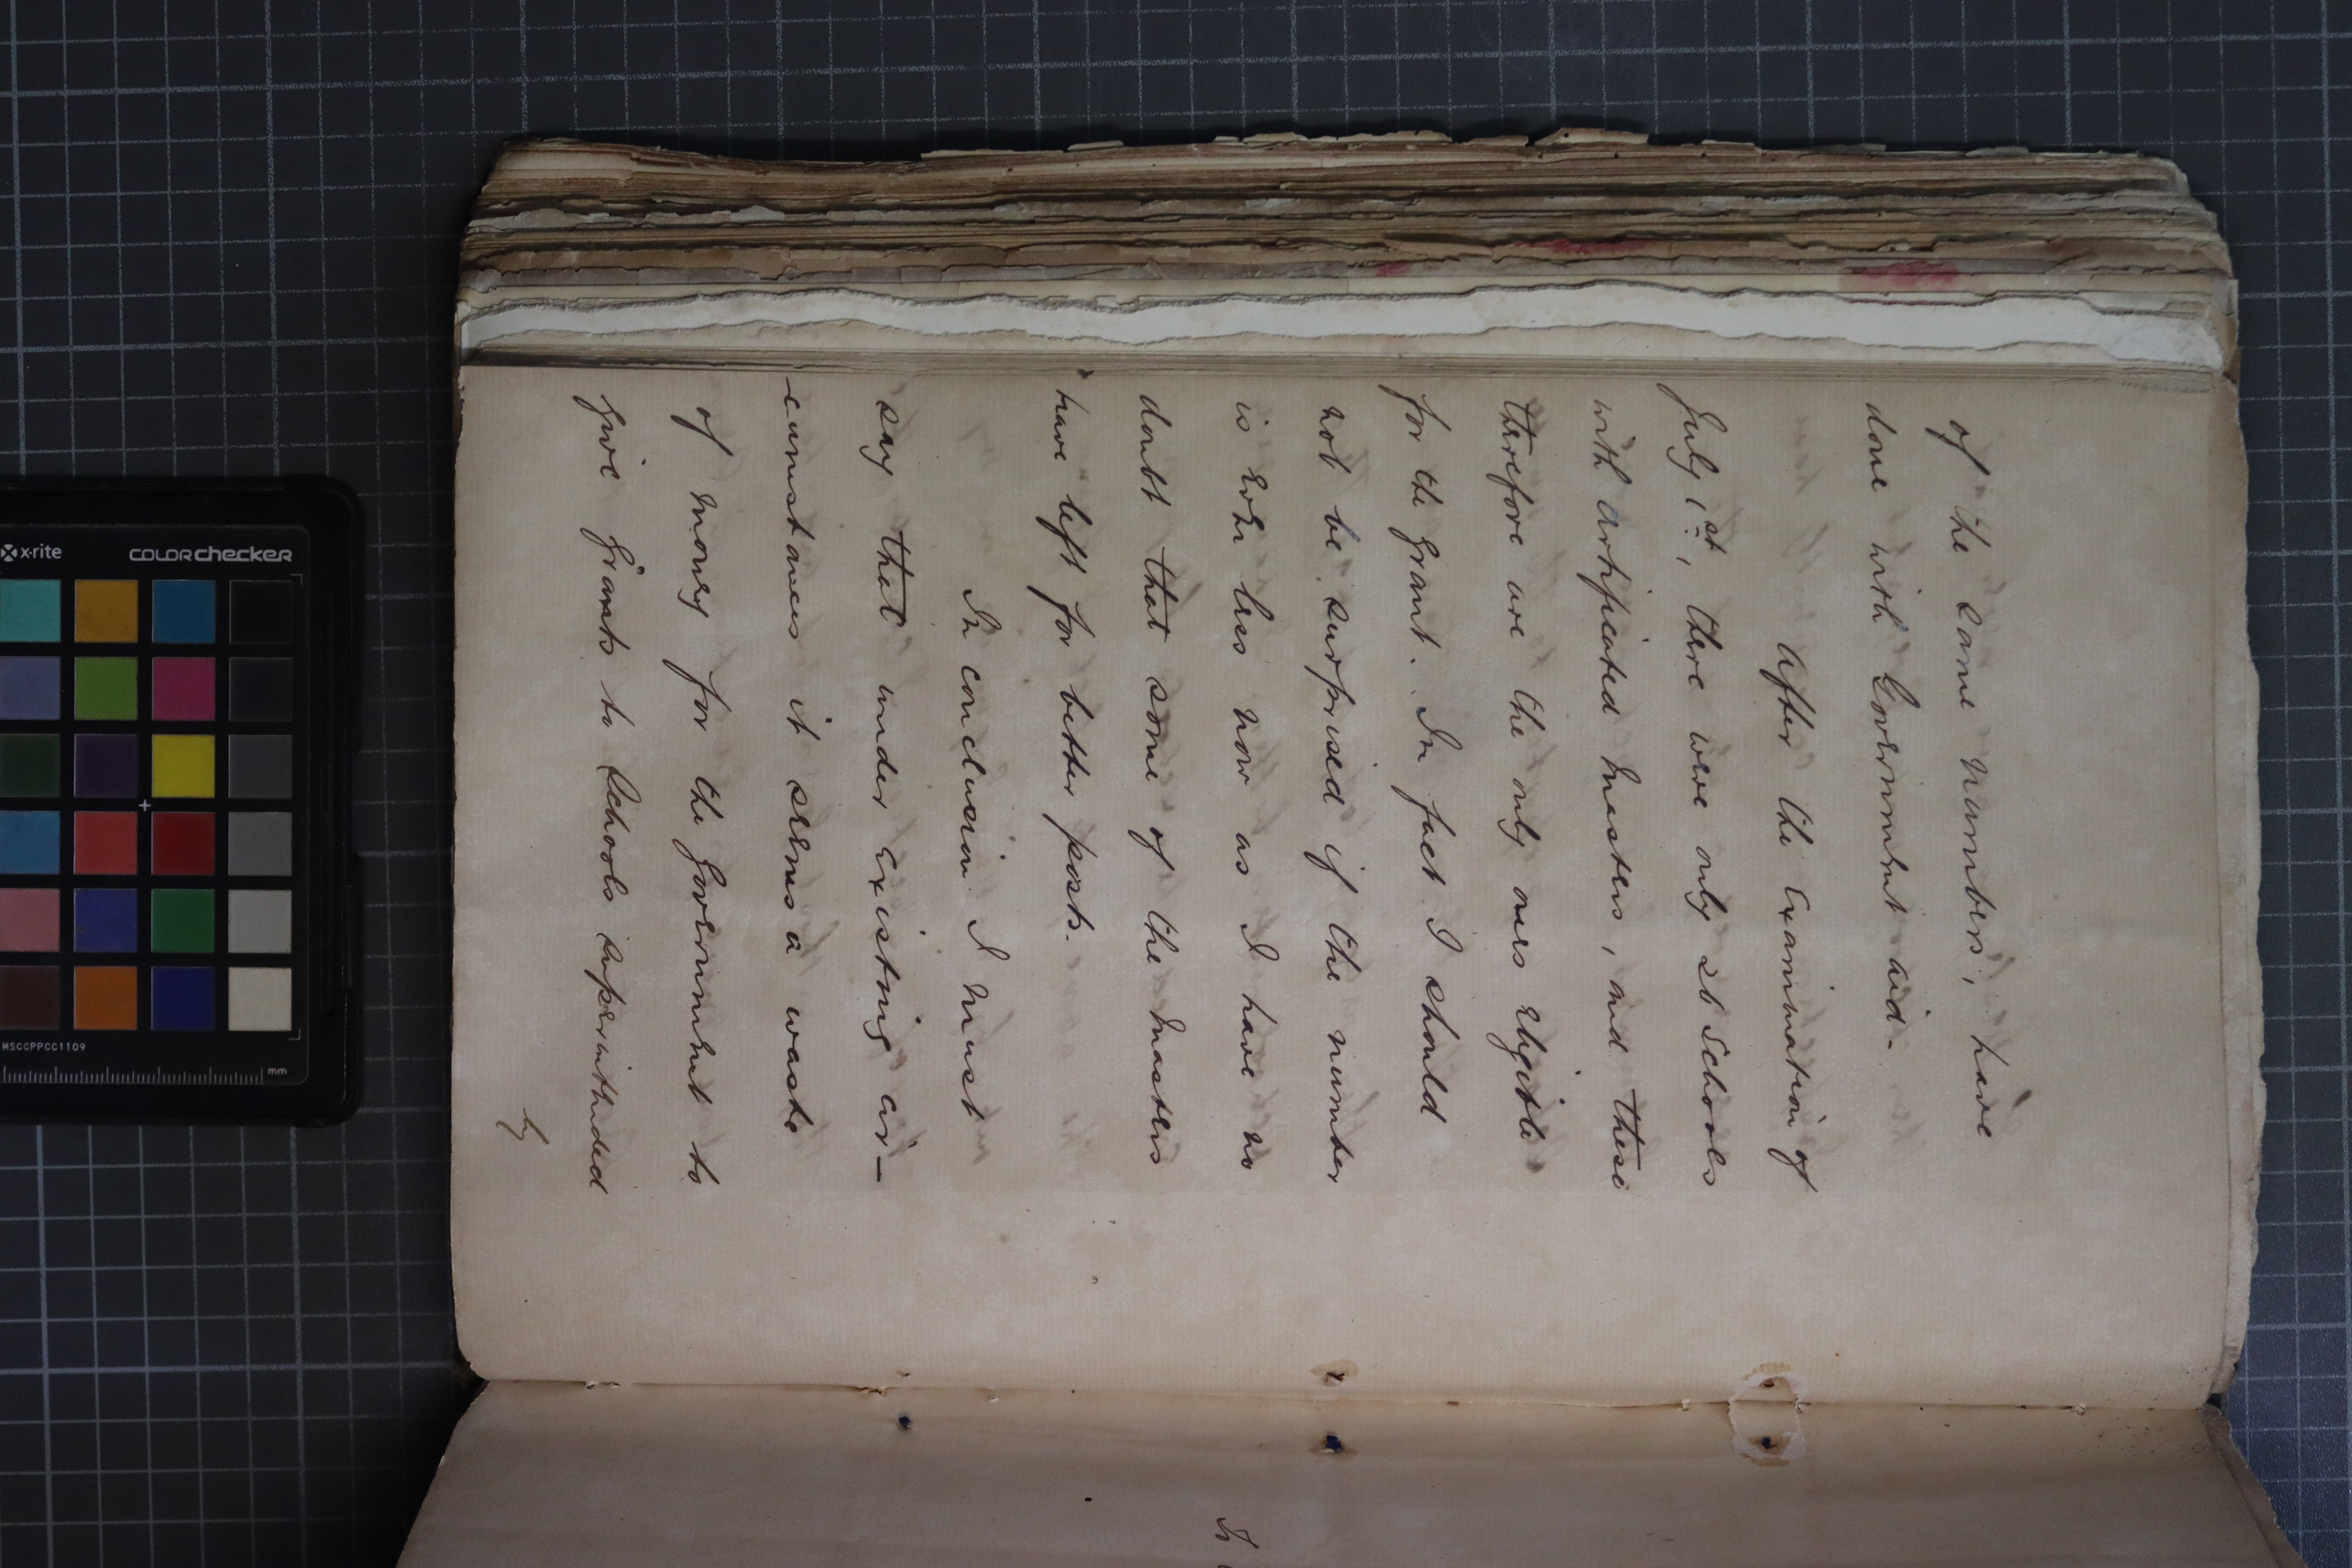 of the same numbers, have
done with Government aid.
After the Examination of
July 1st, there were only 21 Schools
with Certificated Masters, and these
therefore are the only ones eligible
for the Grant. In fact I should
not be surprised if the number
is even less now as I have no
doubt that some of the Masters
have left for better posts.
In conclusion I must
say that under existing cir-
-cumstances it seems a waste
of money for the Government to
give Grants to Schools superintended
by
x-rite
colorchecker
MSCCPPCC1109
mm